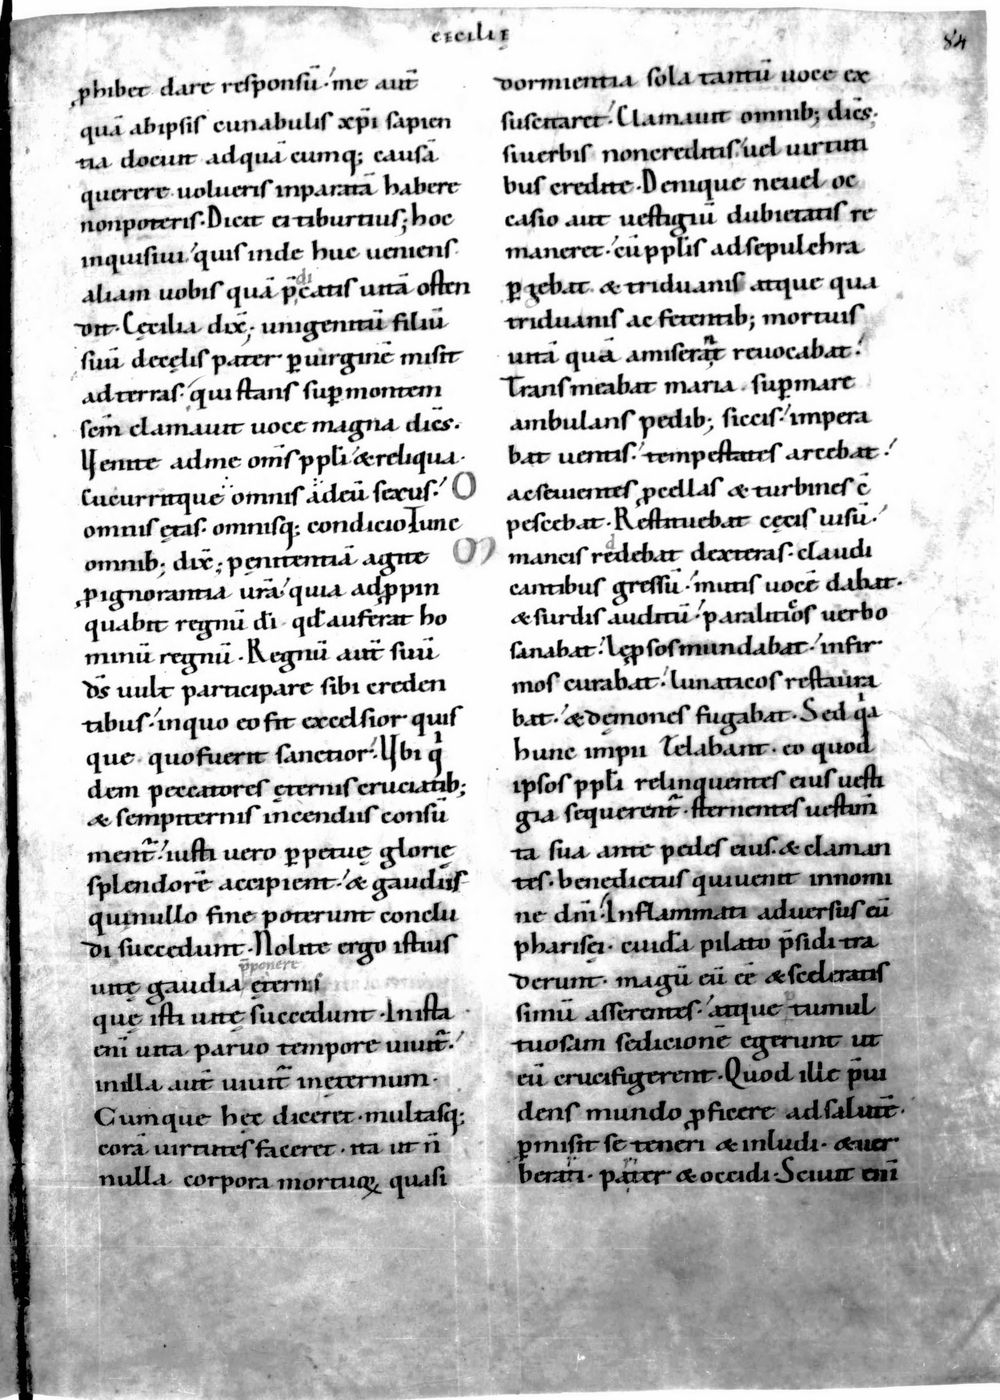 CECILIĘ
84
ꝓhibet dare responsū· me aut̄
quā abipsis cunabulis xp̄i sapien
tia docuit adquācumq; causā
querere uolueris inparatā habere
nonpoteris· Dicit ei tiburtius; hoc
inquisiui· quis inde huc ueniens
aliam uobis quā p̄dicatis uitā osten
dit· Cęcilia dix̄· unigenitū filiū
suū decęlis pater ꝑuirginē misit
adterras· qui stans suꝑmontem
sc̄m clamauit uoce magna dicēs·
Uenite adme om̄s ppl̄i· & reliqua·
Cucurritque omnis ad eū sexus· O
omnis ętas· omnisq; condicio Tunc
omnib; dix̄; penitentiā agite
ꝓignorantia ur̄a· quia adꝓpin
quabit regnū dī· qđ auferat ho
minū regnū· Regnū aut̄ suū
ds̄ uult participare sibi creden
tibus· inquo eo fit excelsior quis
que quofuerit sanctior· Ubi q
dem peccatores ęternis cruciatib;
& sempiternis incendiis consū
ment̄· iusti uero ꝑpetuę glorię
splendorē accipient· & gaudiis
quinullo fine poterunt conclu
di succedunt· Nolite ergo istius
p̄ponere
uitę gaudia ęterni
quę isti uitę succedunt· Inista
enī uita paruo tempore uiuit̄·
inilla aut̄ uiuit̄ ineternum·
Cumque hęc diceret· multasq;
corā uirtutes faceret· ita ut n̄
nulla corpora mortuoꝝ quasi
dormientia sola tantū uoce ex
suscitaret· Clamauit omnib; dicēs·
siuerbis noncreditis· uel uirtuti
bus credite· Denique neuel oc
casio aut uestigiū dubietatis re
maneret· cū pplis adsepulchra
ꝑgebat & triduanis atque qua
triduanis ac fetentib; mortuis
uitā quā amiserant reuocabat·
Transmeabat maria· suꝑmare
ambulans pedib; siccis· impera
bat uentis· tempestates arcebat·
acseuientes ꝓcellas & turbines cō
pescebat· Restituebat cęcis uisū·
mancis reddebat dexteras· claudi
cantibus gressū· mutis uocē dabat·
& surdis auditū· paraliticos uerbo
sanabat· leprosos mundabat· infir
mos curabat· lunaticos restaura
bat· & demones fugabat· Sed qa
hunc impii Telabant· eo quod
ipsos ppl̄i relinquentes eius uesti
gia sequerent̄· sternentes uestim̄
ta sua ante pedes eius· & claman
tes· benedictus quiuenit innomi
ne dn̄i· Inflammati aduersus eū
pharisęi· cuidā pilato p̄sidi tra
derunt· magū eū eē & sceleratis
simū asserentes· atque tumul
tuosam sedicionē egerunt ut
eū crucifigerent· Quod ille p̄ui
dens mundo ꝓficere adsalutē·
ꝑmisit se teneri & inludi· & uer
berari· pater & occidi· Sciuit enī